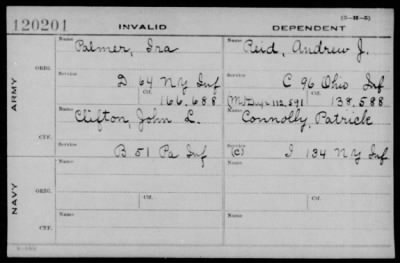 (3-H-5)
120201 INVALID DEPENDENT
Name Palmer, Ira Name Reid, Andrew J.
ORIG.
Service D 64 N Y Inf Service C 96 Ohio Inf
Ctf. 166.688 Ctf. 138.588
ARMY
Name Clifton, John L. Name Connolly, Patrick
CTF.
Service B 51 Pa Inf Service (C) I 134 N Y Inf
Name Name
ORIG.
Service Ctf. Service Ctf.
NAVY
Name Name
CTF.
Service Service